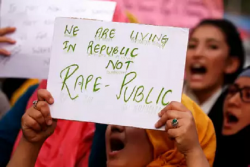 WE ARE LIVING
IN REPUBLIC
NOT
RAPE-PUBLIC